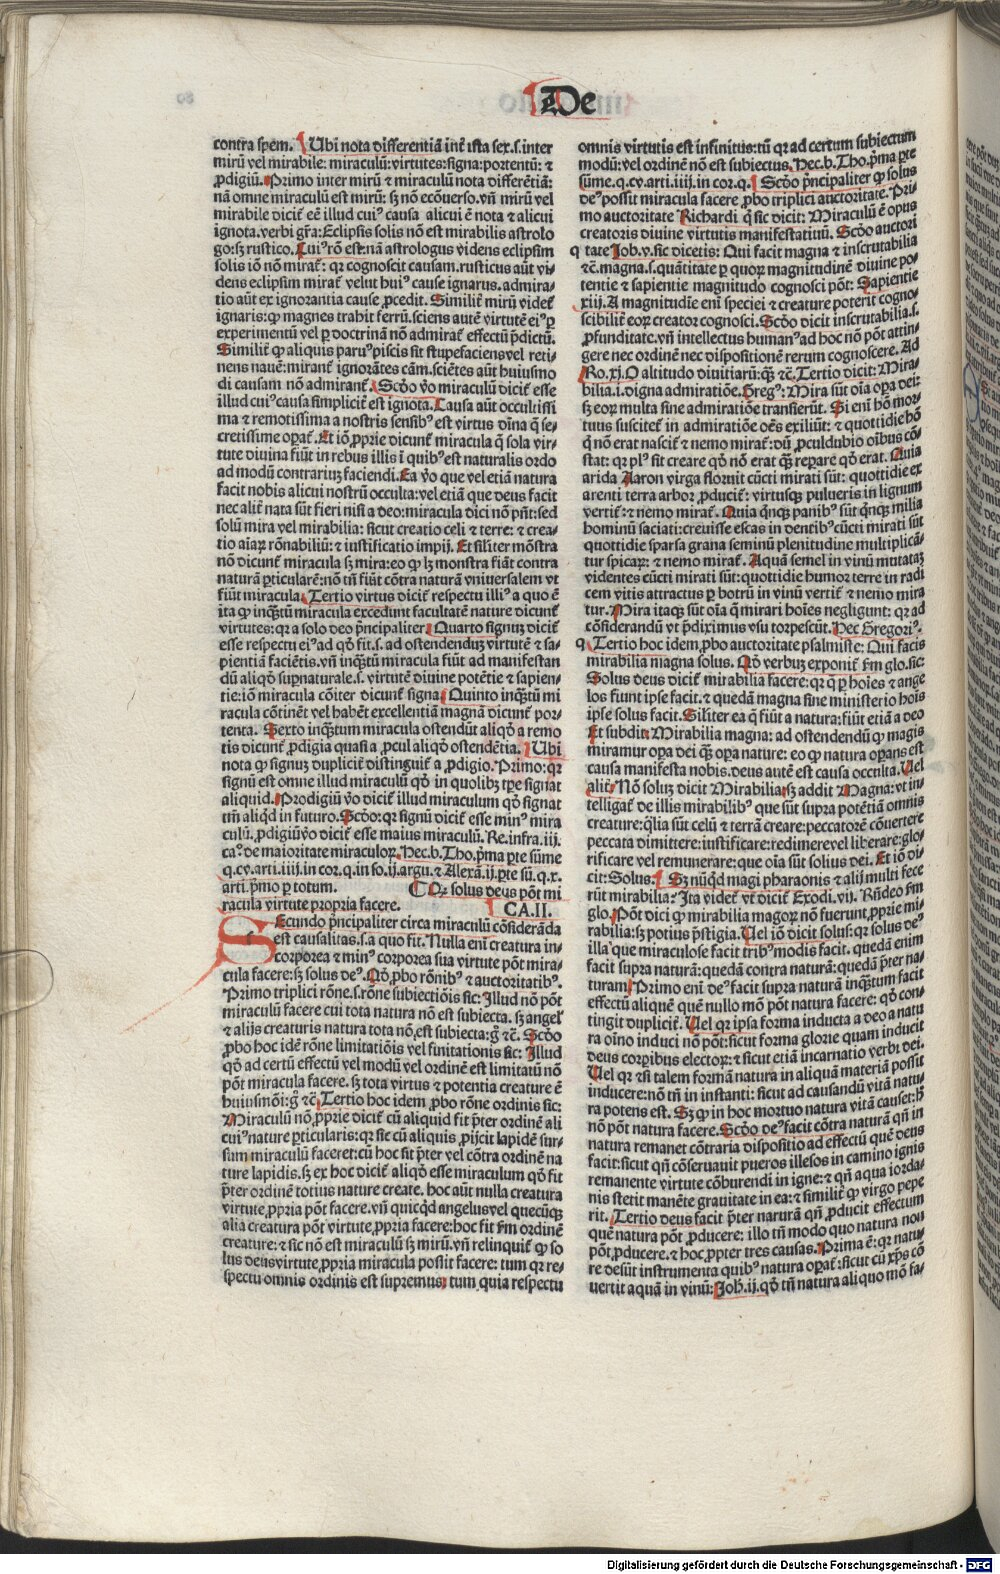 De
contra spem. Ubi nota differentiā int̄ ista sex.s.inter
mirū vel mirabile: miraculū: virtutes: signa: portentū: ⁊
ꝓdigiū. Primo inter mirū ⁊ miraculū nota differētiā:
nā omne miraculū est mirū: sꝫ nō ecōuerso. vn̄ mirū vel
mirabile dicit̄ eē illud cui⁹ causa alicui ē nota ⁊ alicui
ignota. verbi gr̄a: Eclipsis solis nō est mirabilis astrolo
go: sꝫ rustico. Cui⁹ rō est: nā astrologus videns eclipsim
solis iō nō mirat̄: qꝛ cognoscit causam. rusticus aūt vi⸗
dens eclipsim mirat̄ velut hui⁹ cause ignarus. admira⸗
tio aūt ex ignorantia cause ꝓcedit. Similit̄ mirū videt̄
ignaris: ꝙ magnes trahit ferrū. sciens autē virtutē ei⁹ ꝑ
experimentū vel ꝑ doctrinam nō admirat̄ effectū p̄dictū.
Similit̄ ꝙ aliquis paru⁹ piscis sit stupefaciens vel reti⸗
nens nauē: mirant̄ ignorātes cām. sciētes aūt huiusmo
di causam nō admirant̄. Scd̄o v̄o miraculū dicit̄ esse
illud cui⁹ causa simplicit̄ est ignota. Causa aūt occultissi
ma ⁊ remotissima a nostris sensib⁹ est virtus diīna q̄ se⸗
cretissime oꝑat̄. Et iō ꝓprie dicunt̄ miracula q̄ sola vir⸗
tute diuina fiūt in rebus illis ī quib⁹ est naturalis ordo
ad modū contrarium faciendi. Ea v̄o que vel etiā natura
facit nobis alicui nostrū occulta: vel etiā que deus facit
nec alit̄ nata sūt fieri nisi a deo: miracula dici nō pn̄t: sed
solū mira vel mirabilia: sicut creatio celi ⁊ terre: ⁊ crea⸗
tio aīaꝝ rōnabiliū: ⁊ iustificatio impij. Et siliter mōstra
nō dicunt̄ miracula sꝫ mira: eo ꝙ lꝫ monstra fiāt contra
naturā ꝑticularē: nō tn̄ fiūt cōtra naturā vniuersalem vt
fiūt miracula. Tertio virtus dicit̄ respectu illi⁹ a quo ē
ita ꝙ inqꝫtū miracula excedunt facultatē nature dicunt̄
virtutes: qꝛ a solo deo p̄ncipaliter. Quarto signum dicit̄
esse respectu ei⁹ ad qd̄ fit. s. ad ostendendum virtutē ⁊ sa⸗
pientiā faciētis. vn̄ inqꝫtū miracula fiūt ad manifestan
dū aliqd̄ supnaturale. s. virtutē diuine potētie ⁊ sapien⸗
tie: iō miracula cōiter dicunt̄ signa. Quinto inqꝫtū mi
racula cōtinēt vel habēt excellentiā magnā dicunt̄ por⸗
tenta. Sexto inqꝫtum miracula ostendūt aliqd̄ a remo
tis dicunt̄ ꝓdigia quasi a ꝓcul aliqd̄ ostendētia. Ubi
nota ꝙ signum duplicit̄ distinguit̄ a ꝓdigio. Primo: qꝛ
signū est omne illud miraculū qd̄ in quolibꝫ tꝑe signat
aliquid. Prodigiū v̄o dicit̄ illud miraculum qd̄ signat
tm̄ aliqd̄ in futuro. Scd̄o: qꝛ signū dicit̄ esse min⁹ mira
culū. ꝓdigiū v̄o dicit̄ esse maius miraculū. Re. infra. iii.
ca⁰. de maioritate miraculoꝝ. Hec. b. Tho. p̄ma ꝑte sūme
q. cv. arti. iiii. in coꝛ. q. in so. ij. argu. ⁊ Alexā. ij. ꝑte sū. q. x.
arti. p̄mo ꝑ totum. Qꝛ solus deus pōt mi
racula virtute propria facere. CA. II.
Secundo p̄ncipaliter circa miraculū cōsiderāda
est causalitas. s. a quo fit. Nulla eni creatura in⸗
corporea ⁊ min⁹ corporea sua virtute pōt mira⸗
cula facere: sꝫ solus de⁹. Qd̄ ꝓbo rōnib⁹ ⁊ auctoritatib⁹.
Primo triplici rōne. s. rōne subiectiōis sic: Illud nō pōt
miraculū facere cui tota natura nō est subiecta. sꝫ angel̓
⁊ alijs creaturis natura tota nō est subiecta: g̊ ⁊c̄. Scd̄o
ꝓbo hoc idē rōne limitatiōis vel finitationis sic: Illud
qd̄ ad certū effectū vel modū vel ordinē est limitatū nō
pōt miracula facere. sꝫ tota virtus ⁊ potentia creature ē
huiusmōi: g̊ ⁊c̄. Tertio hoc idem ꝓbo rōne ordinis sic:
Miraculū nō ꝓprie dicit̄ cū aliquid fit p̄ter ordinē ali
cui⁹ nature ꝑticularis: qꝛ sic cū aliquis ꝓijcit lapidē sur⸗
sum miraculū faceret: cū hoc fit p̄ter vel cōtra ordinē na
ture lapidis. sꝫ ex hoc dicit̄ aliqd̄ esse miraculum qd̄ fit
p̄ter ordinē totius nature create. hoc aūt nulla creatura
virtute ꝓpria pōt facere. vn̄ quicqd̄ angelus vel quecūqꝫ
alia creatura pōt virtute ꝓpria facere: hoc fit ẜm ordinē
creature: ⁊ sic nō est miraculū sꝫ mirū. vn̄ relinquit̄ ꝙ so
lus deus virtute ꝓpria miracula possit facere: tum qꝛ re⸗
spectu omnis ordinis est supremus: tum quia respectu
omnis virtutis est infinitus: tū qꝛ ad certum subiectum
modū: vel ordinē nō est subiectus. Hec. b. Tho. p̄ma ꝑte
sūme. q. cv. arti. iiij. in coꝛ. q. Scd̄o p̄ncipaliter ꝙ solus
de⁹ possit miracula facere ꝓbo triplici auctoritate. Pri⸗
mo auctoritate Richardi q̄ sic dicit: Miraculū ē opus
creatoris diuine virtutis manifestatiuū. Scd̄o auctori
q tate Job. v. sic dicētis: Qui facit magna ⁊ inscrutabilia
⁊c̄. magna. s. quātitate ꝑ quoꝝ magnitudinē diuine po⸗
tentie ⁊ sapientie magnitudo cognosci pōt: Sapientie
xiij. A magnitudīe eni speciei ⁊ creature poterit cogno⸗
scibilit̄ eoꝝ creator cognosci. Scd̄o dicit inscrutabilia. s.
ꝓfunditate. vn̄ intellectus human⁹ ad hoc nō pōt attin⸗
gere nec ordinē nec dispositionē rerum cognoscere. Ad
Ro. xj. O altitudo diuitiarū: qꝫ ⁊c̄. Tertio dicit: Mira⸗
bilia. i. digna admiratiōe. Greg⁹: Mira sūt oīa oꝑa dei:
sꝫ eoꝝ multa sine admiratiōe transierūt. Si eni hō mor⸗
tuus suscitet̄ in admiratiōe oēs exiliūt: ⁊ quottidie hō
q̄ nō erat nascit̄ ⁊ nemo mirat̄: dū ꝓculdubio oībus cō⸗
stat: qꝛ pl⁹ sit creare qd̄ nō erat qꝫ reꝑare qd̄ erat. Quia
arida Aaron virga floruit cūcti mirati sūt: quottidie ex
arenti terra arbor ꝓducit̄: virtusqꝫ pulueris in lignum
vertit̄: ⁊ nemo mirat̄. Quia q̄nqꝫ panib⁹ sūt q̄nqꝫ milia
hominū saciati: creuisse escas in dentib⁹ cūcti mirati sūt
quottidie sparsa grana seminū plenitudine multiplicā⸗
tur spicaꝝ: ⁊ nemo mirat̄. Aquā semel in vinū mutatam
videntes cūcti mirati sūt: quottidie humor terre in radi
cem vitis attractus ꝑ botrū in vinū vertit̄ ⁊ nemo mira
tur. Mira itaqꝫ sūt oīa q̄ mirari hoīes negligunt: qꝛ ad
cōsiderandū vt p̄diximus vsu torpescūt. Hec Gregori⁹.
q Tertio hoc idem ꝓbo auctoritate psalmiste: Qui facis
mirabilia magna solus. Qd̄ verbum exponit̄ ẜm glo. sic:
Solus deus dicit̄ mirabilia facere: qꝛ q̄ ꝑ hoīes ⁊ ange
los fiunt ipse facit. ⁊ quedā magna sine ministerio hoīs
ipse solus facit. Siliter ea q̄ fiūt a natura: fiūt etiā a deo
Et subdit: Mirabilia magna: ad ostendendū ꝙ magis
miramur oꝑa dei qꝫ oꝑa nature: eo ꝙ natura oꝑans est
causa manifesta nobis. deus autē est causa occulta. Uel
alit̄: Nō solum dicit Mirabilia: sꝫ addit Magna: vt in⸗
telligat̄ de illis mirabilib⁹ que sūt supra potētiā omnis
creature: q̄lia sūt celū ⁊ terrā creare: peccatorē cōuertere
peccata dimittere: iustificare: redimere vel liberare: glo⸗
rificare vel remunerare: que oīa sūt solius dei. Et iō di⸗
cit: Solus. Sꝫ nūqd̄ magi pharaonis ⁊ alij multi fece
rūt mirabilia? Ita videt̄ vt dicit̄ Exodi. vij. Rn̄deo ẜm
glo. Pōt dici ꝙ mirabilia magoꝝ nō fuerunt ꝓprie mi⸗
rabilia: sꝫ potius p̄stigia. Uel iō dicit solus: qꝛ solus de⁹
illa que miraculose facit trib⁹ modis facit. quedā enim
facit supra naturā: quedā contra naturā: quedā p̄ter na⸗
turam. Primo eni de⁹ facit supra naturā inqꝫtum facit
effectū aliquē quē nullo mō pōt natura facere: qd̄ con⸗
tingit duplicit̄. Uel qꝛ ipsa forma inducta a deo a natu
ra oīno induci nō pōt: sicut forma glorie quam inducit
deus corꝑibus electoꝝ: ⁊ sicut etiā incarnatio verbi dei.
Uel qꝛ etsi talem formā natura in aliquā materiā possit
inducere: nō tn̄ in instanti: sicut ad causandū vitā natu⸗
ra potens est. Sꝫ ꝙ in hoc mortuo natura vitā causet: h̄
nō pōt natura facere. Scd̄o de⁹ facit cōtra naturā qn̄ in
natura remanet cōtraria dispositio ad effectū quē deus
facit: sicut qn̄ cōseruauit pueros illesos in camino ignis
remanente virtute cōburendi in igne: ⁊ qn̄ aqua iorda⸗
nis stetit manēte grauitate in ea: ⁊ similit̄ ꝙ virgo pepe
rit. Tertio deus facit p̄ter naturā qn̄ ꝓducit effectum
quē natura pōt ꝓducere: illo tn̄ modo quo natura non
pōt ꝓducere. ⁊ hoc ꝓpter tres causas. Prima ē: qꝛ natu⸗
re desūt instrumenta quib⁹ natura oꝑat̄: sicut cū xp̄s cō⸗
uertit aquā in vinū: Joh. ij. qd̄ tn̄ natura aliquo mō fa⸗
Digitalisierung gefördert durch die Deutsche Forschungsgemeinschaft - DFG